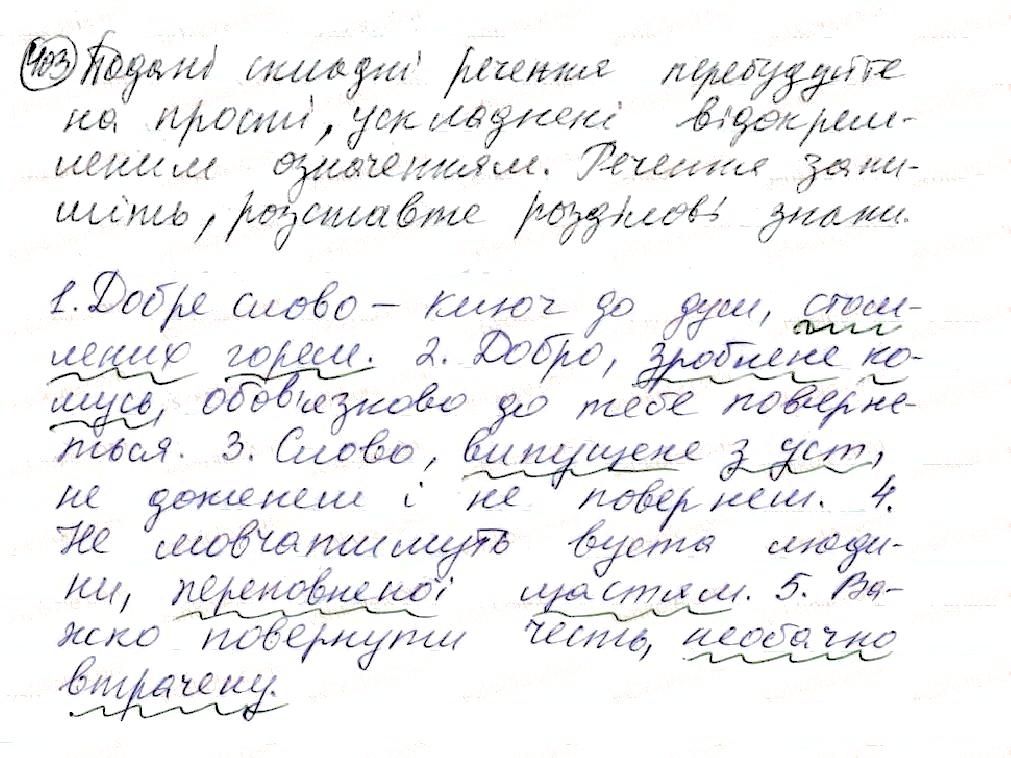 403 Подані складні речення перебудуйте
на прості, ускладнені відокрем-
леним означенням. Речення запи-
шіть, розставте розділові знаки.
1. Добре слово – ключ до душ, стом-
лених горем. 2. Добро, зроблене ко-
мусь, обов'язково до тебе поверне-
ться. 3. Слово, випущене з уст,
не доженеш і не повернеш. 4.
Не мовчатимуть вуста люди-
ни, переповненої щастям. 5. Ва-
жко повернути честь, необачно
втрачену.